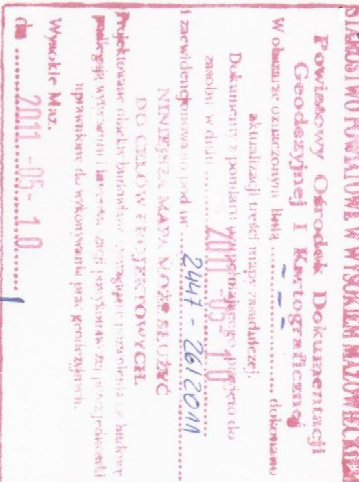 STAROSTWO POWIATOWE W WYSOKIEM MAZOWIECKIEM
Powiatowy Ośrodek Dokumentacji
Geodezyjnej I Kartograficznej
W obszarze oznaczonym linią ............ dokonano
aktualizacji treści mapy zasadniczej.
Dokumenty z pomiaru przyjęto do
zasobu w dniu 2011 -05- 1 0
i zaewidencjonowano pod nr. 2447 - 26/2011
NINIEJSZA MAPA MOŻE SŁUŻYĆ
DO CELÓW PROJEKTOWYCH.
Projektowane obiekty budowlane
podlegają wytyczeniu
uprawnione do wykonywania prac geodezyjnych.
Wysokie Maz.
dn. 2011 -05- 1 0